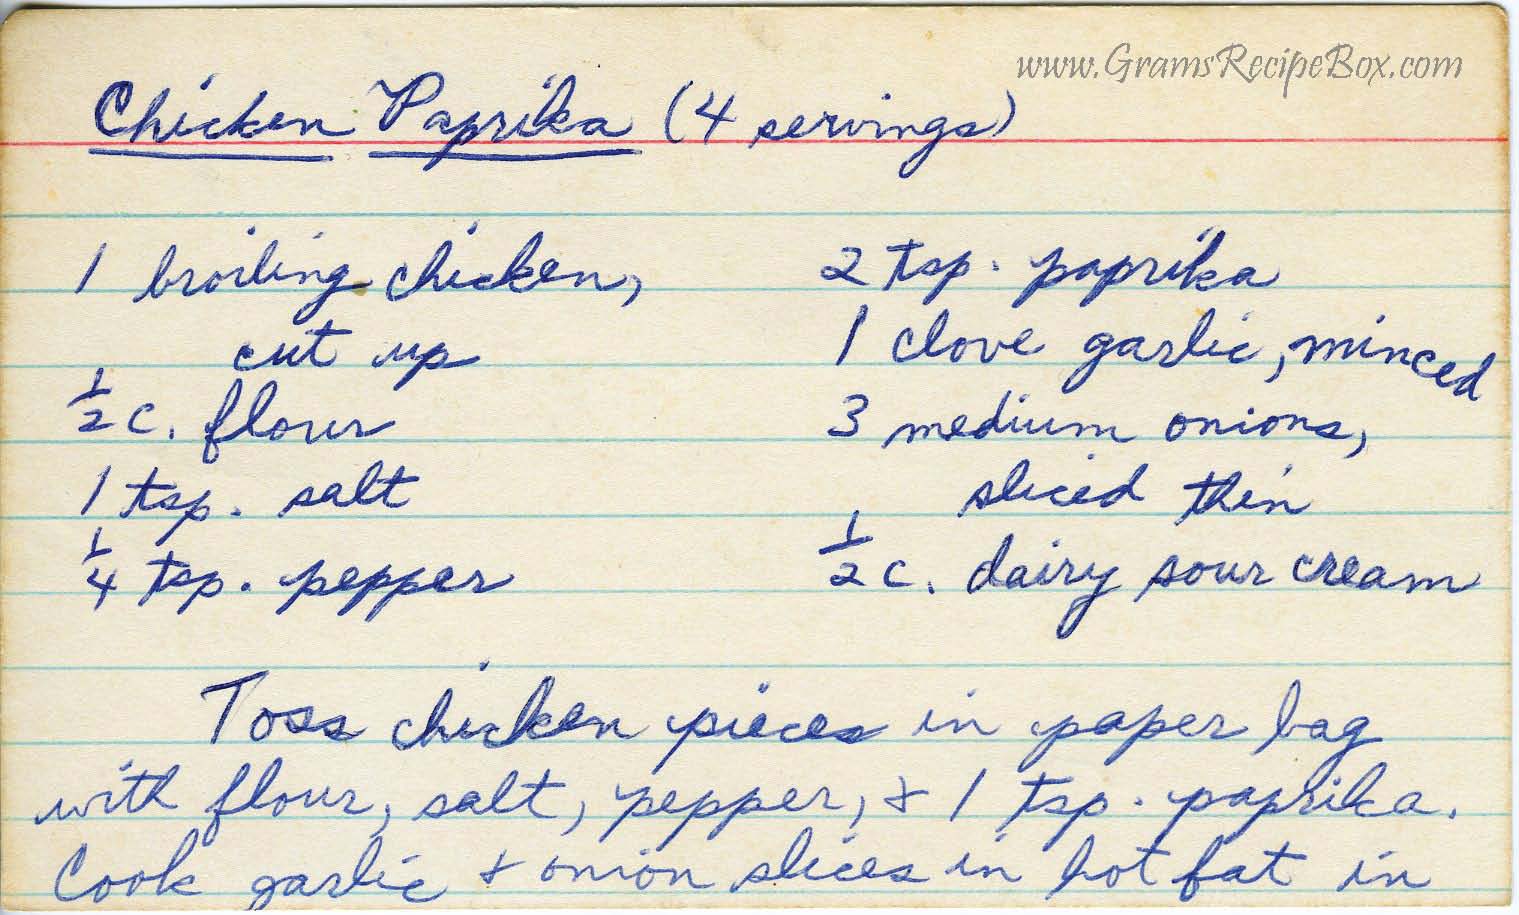 www.GramsRecipeBox.com
Chicken Paprika (4 servings)
1 broiling chicken,
cut up
1/2 c. flour
1 tsp. salt
1/4 tsp. pepper
2 tsp. paprika
1 clove garlic, minced
3 medium onions,
sliced thin
1/2 c. dairy sour cream
Toss chicken pieces in paper bag
with flour, salt, pepper, & 1 tsp. paprika.
Cook garlic & onion slices in hot fat in